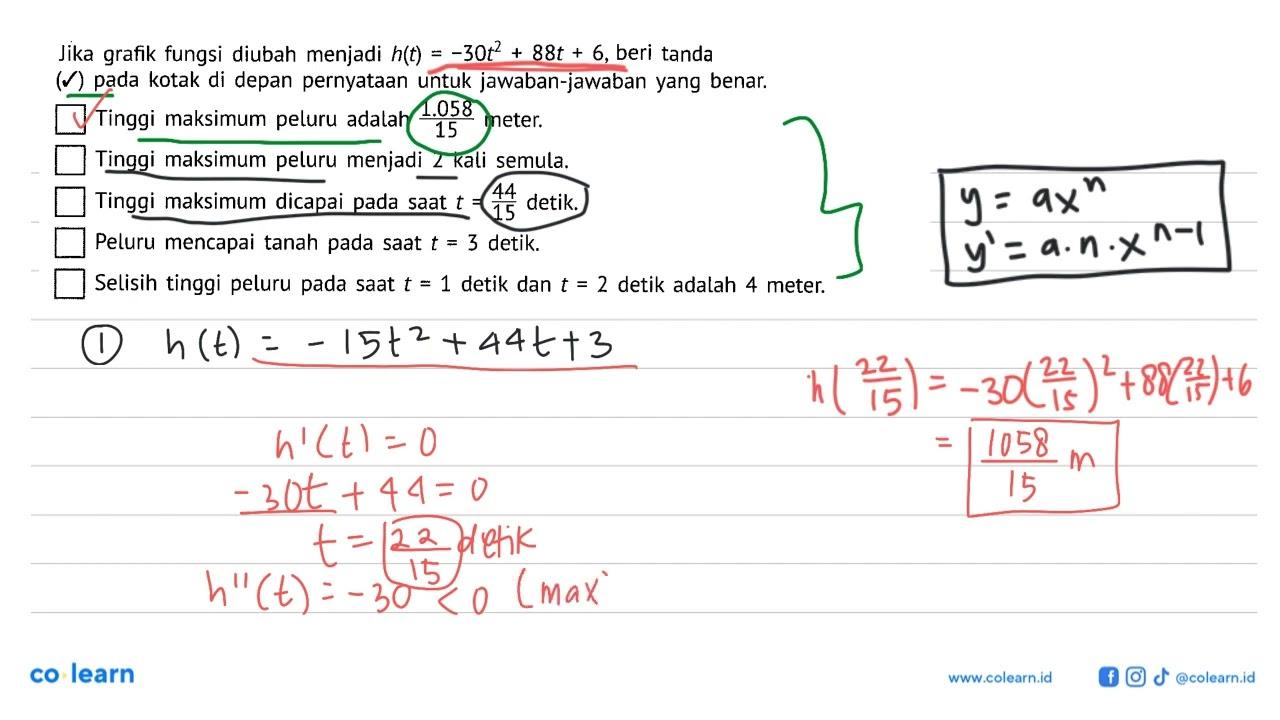 Jika grafik fungsi diubah menjadi h(t) = −30t² + 88t + 6, beri tanda
(✓) pada kotak di depan pernyataan untuk jawaban-jawaban yang benar.
Tinggi maksimum peluru adalah 1.058/15 meter.
Tinggi maksimum peluru menjadi 2 kali semula.
Tinggi maksimum dicapai pada saat t = 44/15 detik.
Peluru mencapai tanah pada saat t = 3 detik.
Selisih tinggi peluru pada saat t = 1 detik dan t = 2 detik adalah 4 meter.
y = ax^n
y' = a·n·x^n−1
① h(t) = −15t² + 44t + 3
h'(t) = 0
−30t + 44 = 0
t = 22/15 detik
h''(t) = −30 < 0 (max)
h(22/15) = −30(22/15)² + 88(22/15) + 6
= 1058/15 m
co learn
www.colearn.id
@colearn.id